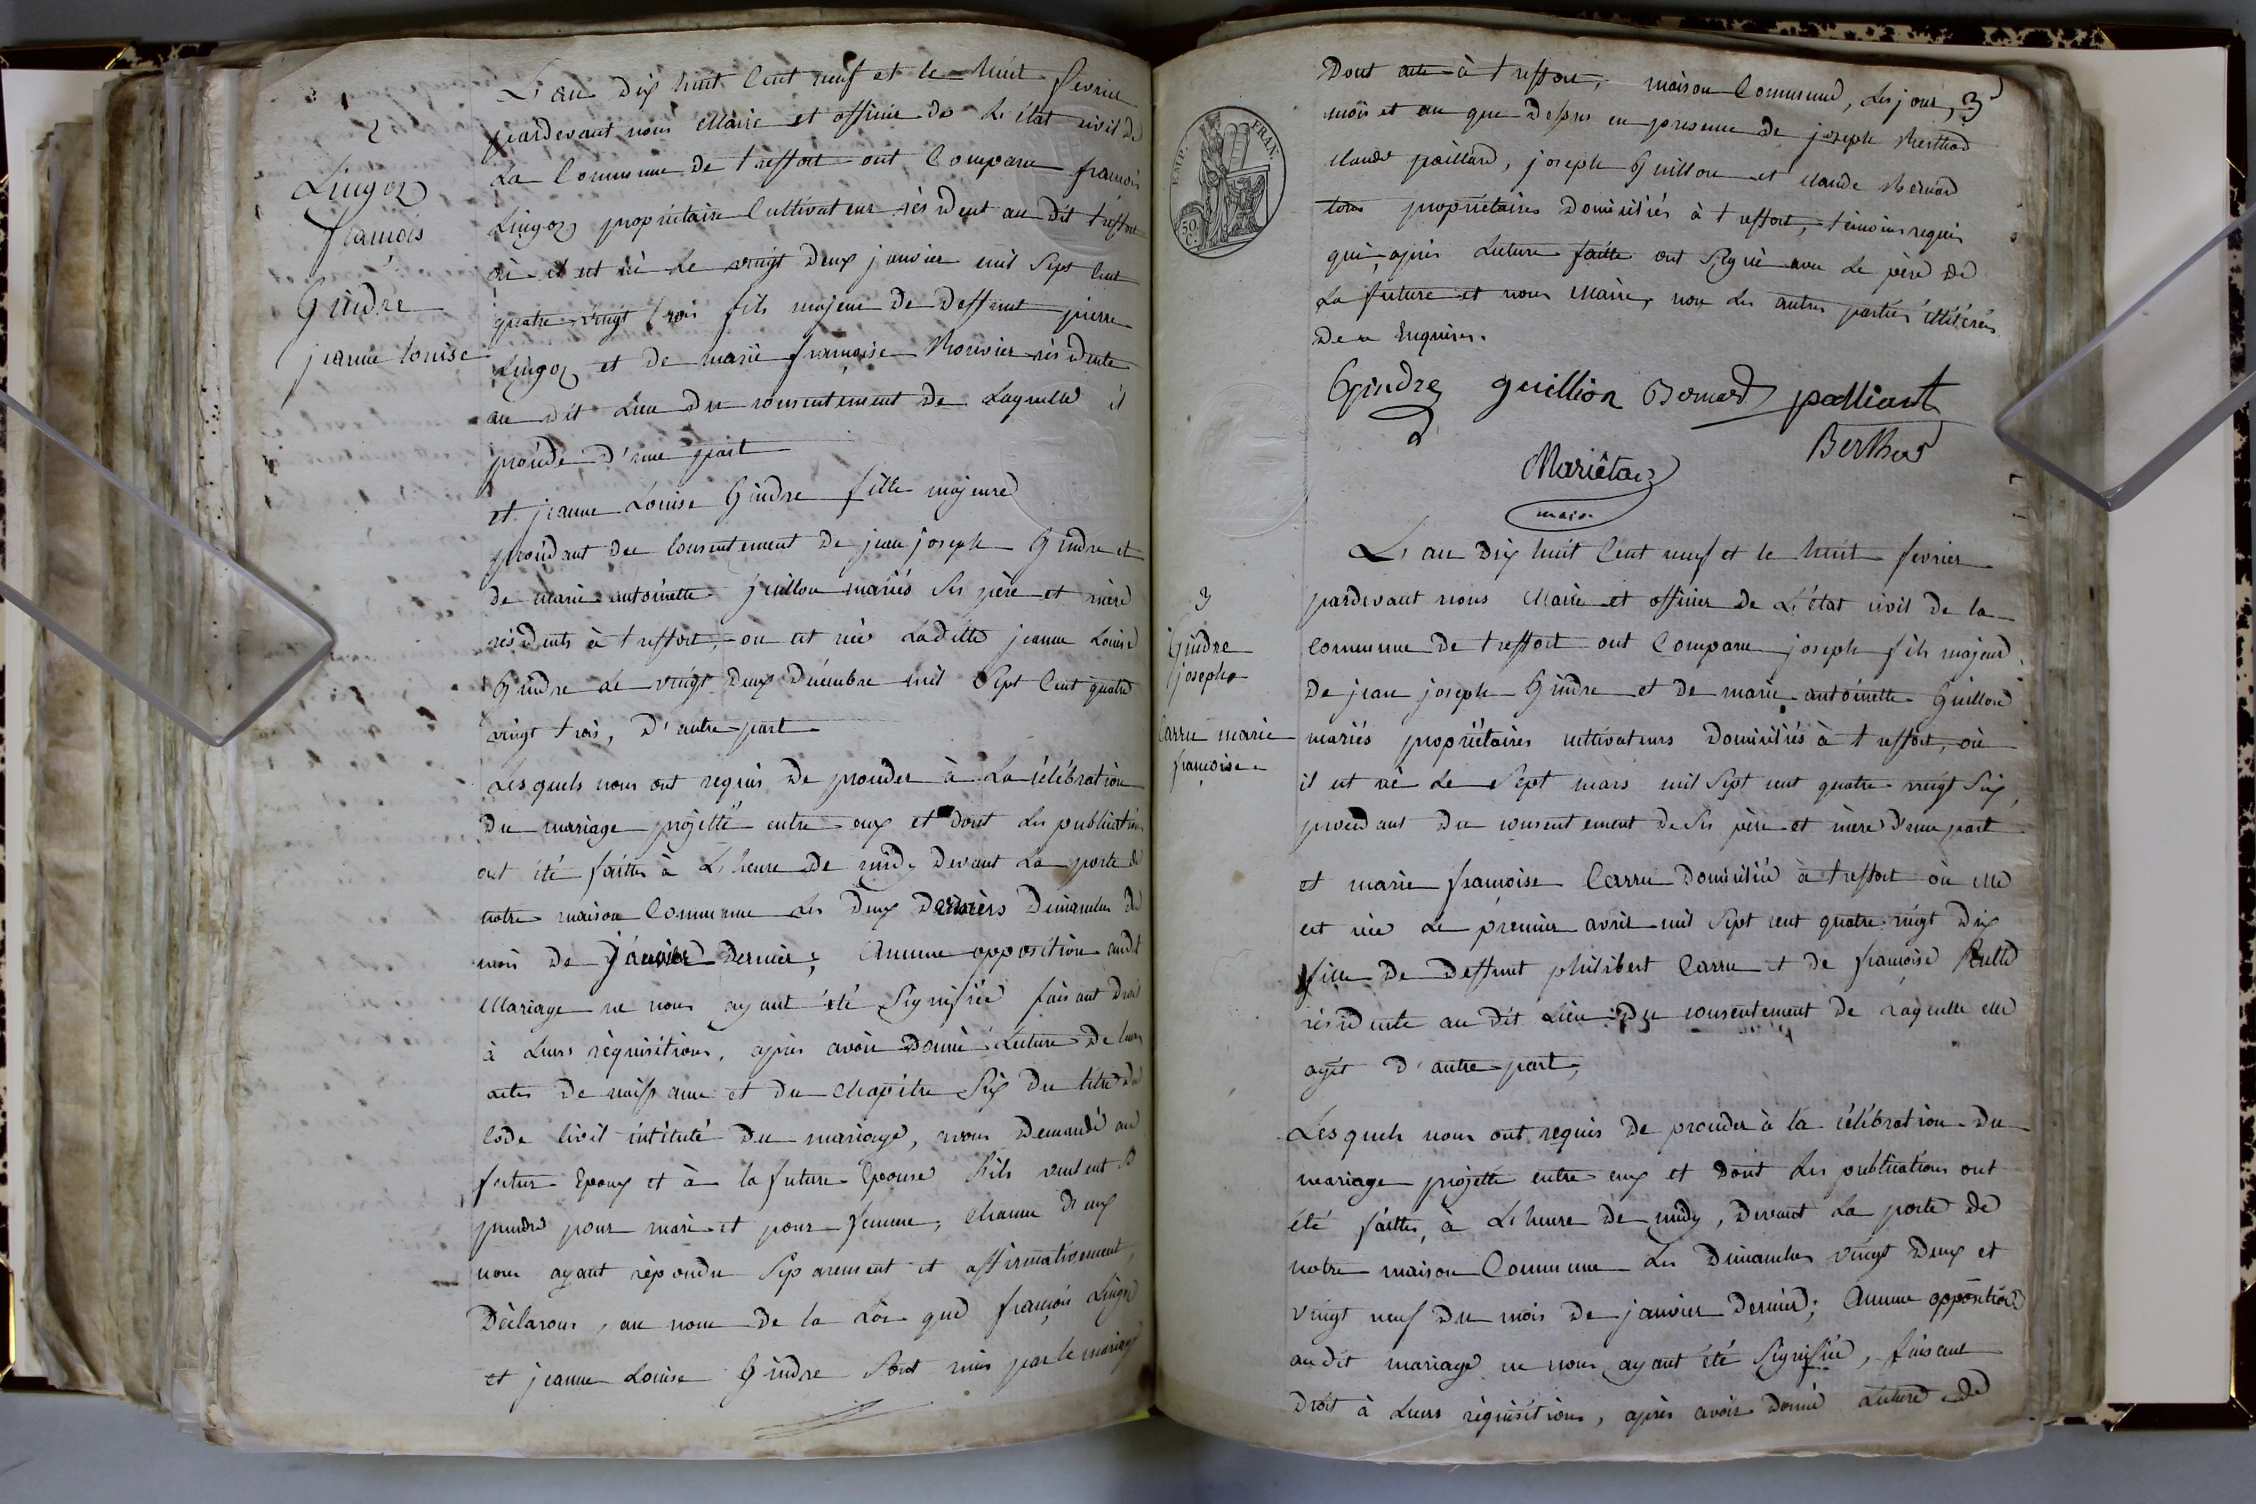 2
Lingoz
françois
Gindre
jeanne louise
L'an dix huit Cent neuf et le huit fevrier
pardevant nous Maire et officier de L'état civil de
La Commune de treffort ont Comparu françois
Lingoz propriétaire Cultivateur résident au dit treffort
où il est né le vingt deux janvier mil Sept Cent
quatre vingt trois fils majeur de deffunt pierre
Lingoz et de marie françoise Bouvier résidente
au dit Lieu du consentement de Laquelle il
procéde d'une part
et jeanne Louise Gindre fille majeure
procédant du Consentement de jean joseph Gindre et
de marie antoinette guillon mariés Ses père et mère
résidents à treffort, ou est née Laditte jeanne Louise
Gindre le vingt deux décembre mil Sept Cent quatre
vingt trois, d'autre part
Lesquels nous ont requis de proceder à La célébration
du mariage projetté entre eux et dont les publications
ont été faittes à L'heure de midy devant La porte de
notre maison Commune les deux derniers dimanches du
mois de janvier dernier; Aucune opposition audt
Mariage ne nous ayant été Signifiée faisant droit
à Leurs réquisitions, après avoir donné Lecture de leurs
actes de naissance et du chapitre Six du titre du
Code Civil intitulé du mariage, avons demandé au
futur Epoux et à la future Epouse S'ils veulent se
prendre pour mari et pour femme, chacun d'eux
nous ayant répondu Séparement et affirmativement,
Déclarons, au nom de la Loi que françois Lingoz
et jeanne Louise Gindre Sont unis par le mariage
EMP. FRAN.
50 C.
3
Dont acte à treffort, maison Commune, les jour,
mois et an que dessus en presence de joseph Berthod
claude paillard, joseph Guillon et claude Bernard
tous propriétaires domiciliés à treffort, témoins requis
qui, après Lecture faitte ont Signé avec Le père de
La future et nous Maire, non les autres parties illitérées
de ce Enquises.
Gindre guillion Bernard palliart
Berthod
Mariétaz
maire
3
Gindre
joseph
Carru marie
françoise
L'an dix huit Cent neuf et le huit fevrier
pardevant nous Maire et officier de L'état civil de la
commune de treffort ont Comparu joseph fils majeur
de jean joseph Gindre et de marie antoinette Guillon
mariés propriétaires cultivateurs domiciliés à treffort, où
il est né Le Sept mars mil Sept cent quatre vingt Six,
procédant du consentement de Ses père et mère d'une part
et marie françoise Carru domiciliée à treffort où elle
est née Le premier avril mil Sept cent quatre vingt dix
fille de deffunt philibert Carru et de françoise
résidente au dit Lieu du consentement de laquelle elle
agit d'autre part,
Lesquels nous ont requis de proceder à la célébration du
mariage projetté entre eux et dont les publications ont
été faittes, à L'heure de midy, devant la porte de
notre maison Commune les dimanches vingt deux et
vingt neuf du mois de janvier dernier; Aucune opposition
au dit mariage ne nous ayant été Signifiée, faisant
droit à Leurs réquisitions, après avoir donné Lecture de